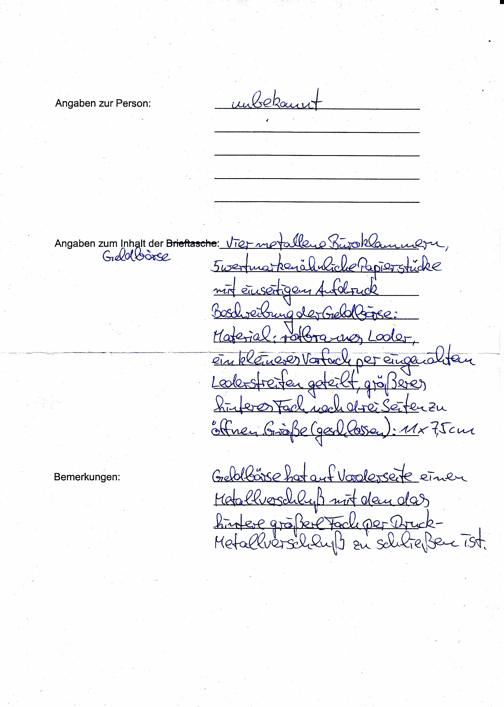 Angaben zur Person: unbekannt
Angaben zum Inhalt der Brieftasche: Vier metallene Büroklammern,
Geldbörse
5 wertmarkenähnliche Papierstücke
mit einseitigem Aufdruck
Beschreibung der Geldbörse:
Material: rotbraunes Leder,
ein kleineres Vorfach per eingenähten
Lederstreifen geteilt, größeres
hinteres Fach nach drei Seiten zu
öffnen Größe (geschlossen): 11 x 7,5 cm
Bemerkungen: Geldbörse hat auf Vorderseite einen
Metallverschluß mit dem das
hintere größere Fach per Druck-
Metallverschluß zu schließen ist.